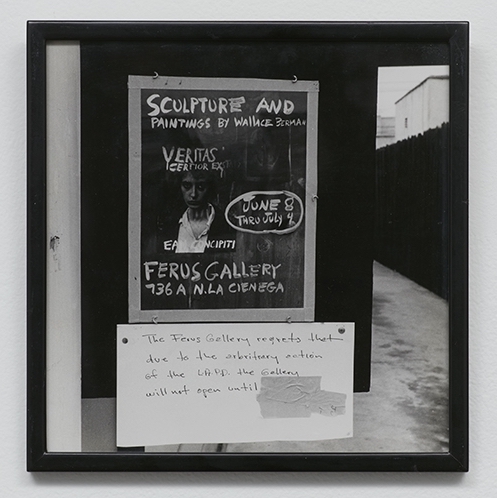 SCULPTURE AND
PAINTINGS BY WALLACE BERMAN
VERITAS
CERTIOR EX
JUNE 8
THRU JULY 4
EAM CONCIPITI
FERUS GALLERY
736 A N. LA CIENEGA
The Ferus Gallery regrets that
due to the arbitrary action
of the LAPD. the Gallery
will not open until